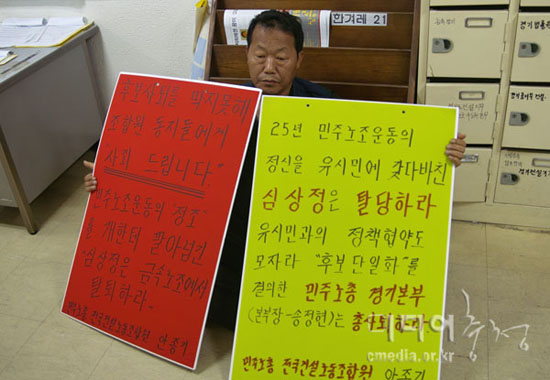 한겨레 21
후보사퇴를 막지못해
조합원 동지들에게
"사죄 드립니다."
민주노조운동의 "정조"
를 팔아넘긴
심상정은 금속노조에서
탈퇴하라-
전국건설노동조합원 안종기
25년 민주노조운동의
정신을 유시민에 갖다바친
심상정은 탈당하라
유시민과의 정책협약도
모자라 "후보단일화"를
결의한 민주노총 경기본부
(본부장-송정현)는 총사퇴하라
민주노총 전국건설노동조합원 안종기
미디어충청
cmedia.or.kr